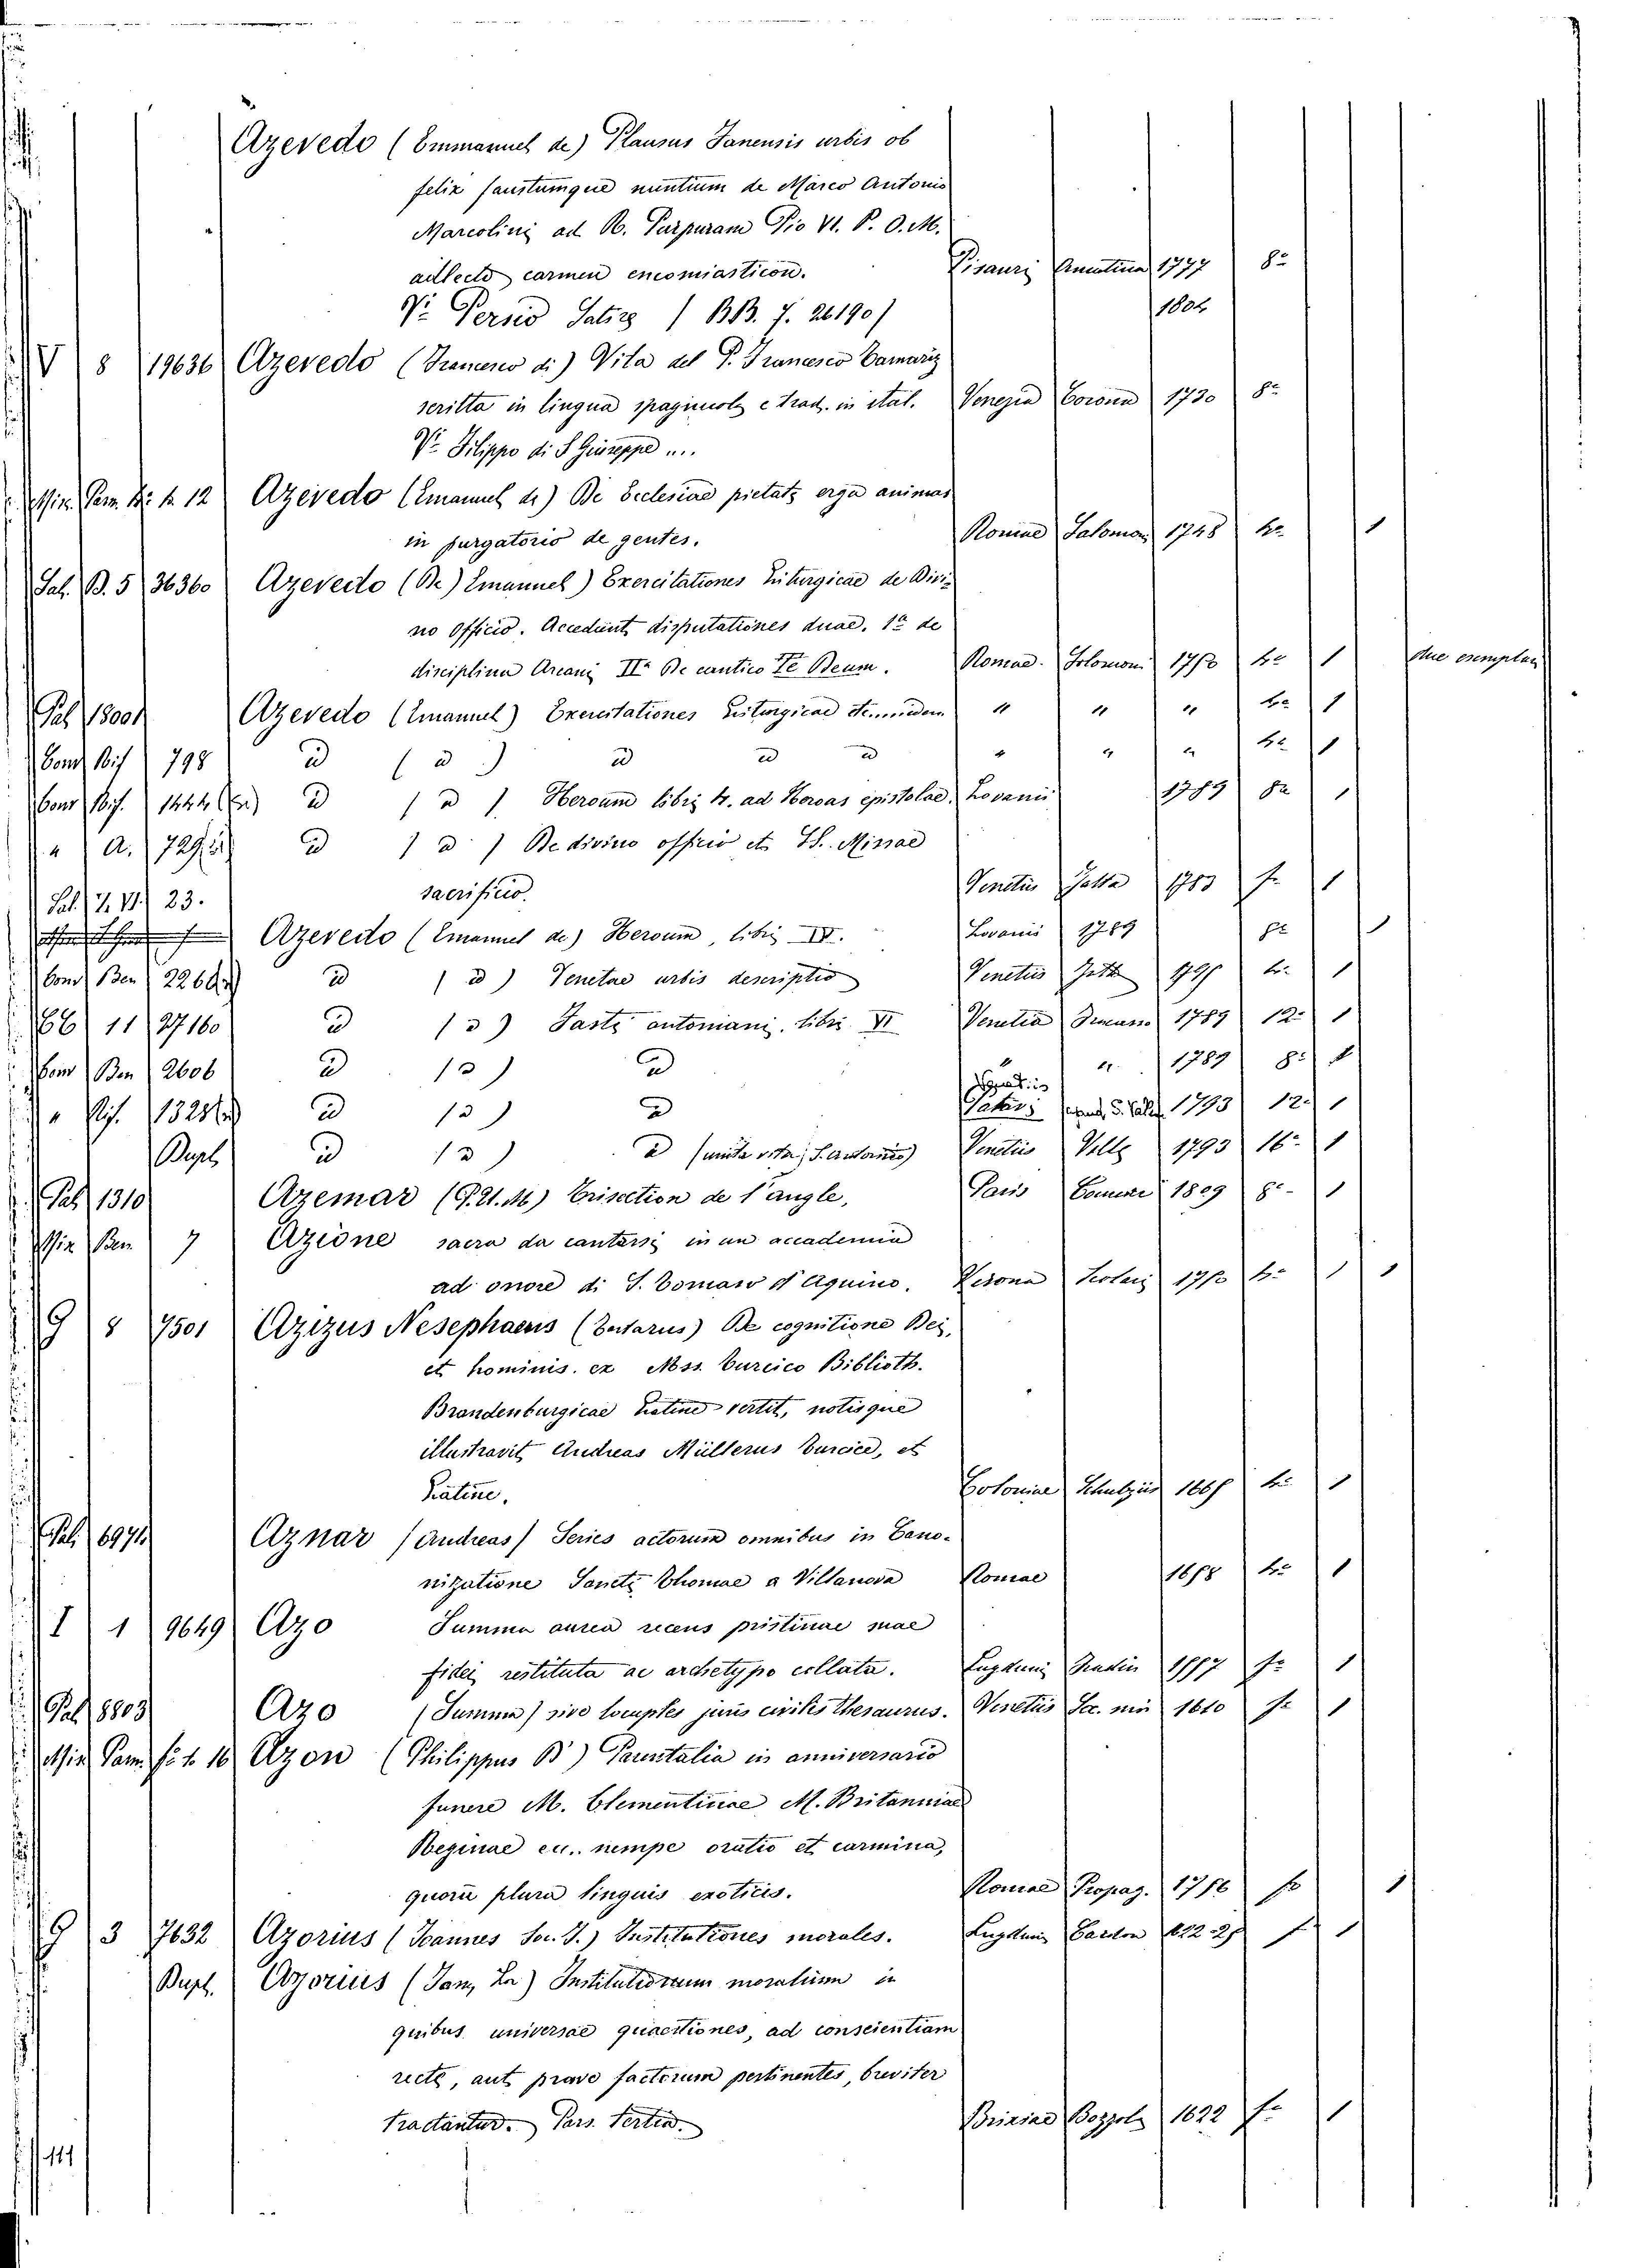 Azevedo (Emmanuel de) Plausus Fanensis urbis ob
felix faustumque nuntium de Marco Antonio
Marcolini ad R. Purpuram Pio VI. P. O. M.
adlecto carmen encomiasticon. Pisauri Amatina 1777 8°
V. Persio Satire (BB. 7. 26190) 1804
V 8 19636 Azevedo (Francesco di) Vita del P. Francesco Camariz
scritta in lingua spagnuola e trad. in ital. Venezia Corona 1730 8°
V. Filippo di S. Giuseppe ...
Min. Pam. 4° t. 12 Azevedo (Emanuel de) De Ecclesiae pietate erga animas
in purgatorio degentes. Romae Salomon 1748 4° 1
Sal. B. 5 36360 Azevedo (De) Emanuel) Exercitationes Liturgicae de Divi-
no Officio. Accedunt disputationes duae. 1a de
disciplina Arcani IIa De cantico Te Deum. Romae. Solomoni 1750 4° 1 due esemplari
Pal. 18001 Azevedo (Emanuel) Exercitationes Liturgicae " " " 4° 1
Com. Rif. 798 id (id) id id id " " " 4° 1
Com. Rif. 1444 id (id) Heroum libri 4. ad Heroas epistolae. Lovanii 1789 8° 1
" A. 729 id (id) De divino officio et SS. Missae
Sal. Z. VI. 23. sacrificio. Venetiis Gatta 1783 f° 1
Azevedo (Emanuel de) Heroum, libri IV. Lovanii 1789 8° 1
Com. Ben. 2260 id (id) Venetae urbis descriptio Venetiis Gatti 4° 1
BB 11 27160 id (id) Fasti antoniani, libri VI Venetia 1789 12° 1
Com. Ben. 2606 id (id) id " " 1789 8° 1
" Rif. 13281 id (id) id Patavi 1793 12° 1
Dupl. id (id) id (unita vita S. Antonio) Venetiis Valle 1793 16° 1
Pal. 1310 Azemar (P. M.) Trisection de l'angle, Paris 1809 8° 1
Min. Ben. 7 Azione sacra da cantarsi in un accademia
ad onore di S. Tomaso d'Aquino. Verona 4° 1
G 8 7501 Azizus Nesephaeus (Tartarus) De cognitione Dei,
et hominis. ex Mss. Turcico Biblioth.
Brandenburgicae Latine vertit, notisque
illustravit Andreas Müllerus Turcice, et
Latine. Coloniae Schulzius 4° 1
Pal. 6971 Aznar (Andreas) Series actorum omnibus in Cano-
nizatione Sancti Thomae a Villanova Romae 1658 4° 1
I 1 9649 Azo Summa aurea recens pristinae suae
fidei restituta ac archetypo collata. Lugduni 1557 f° 1
Pal. 8803 Azo (Summa) sive locuples juris civilis thesaurus. Venetiis 1610 f° 1
Min. Pam. f° t. 16 Azon (Philippus B.) Parentalia in anniversario
funere M. Clementinae M. Britanniae
Reginae ec. nempe oratio et carmina,
quoru plura linguis exoticis. Romae Propag. 1736 f° 1
G 3 7632 Azorius (Joannes Soc. J.) Institutiones morales. Lugduni Cardon 1622-25 f° 1
Dupl. Azorius (Jan, Lr) Institutionum moralium in
quibus universae quaestiones, ad conscientiam
recte, aut prave factorum pertinentes, breviter
tractantur. Pars. Tertia. Brixiae Bozzola 1622 f° 1
111